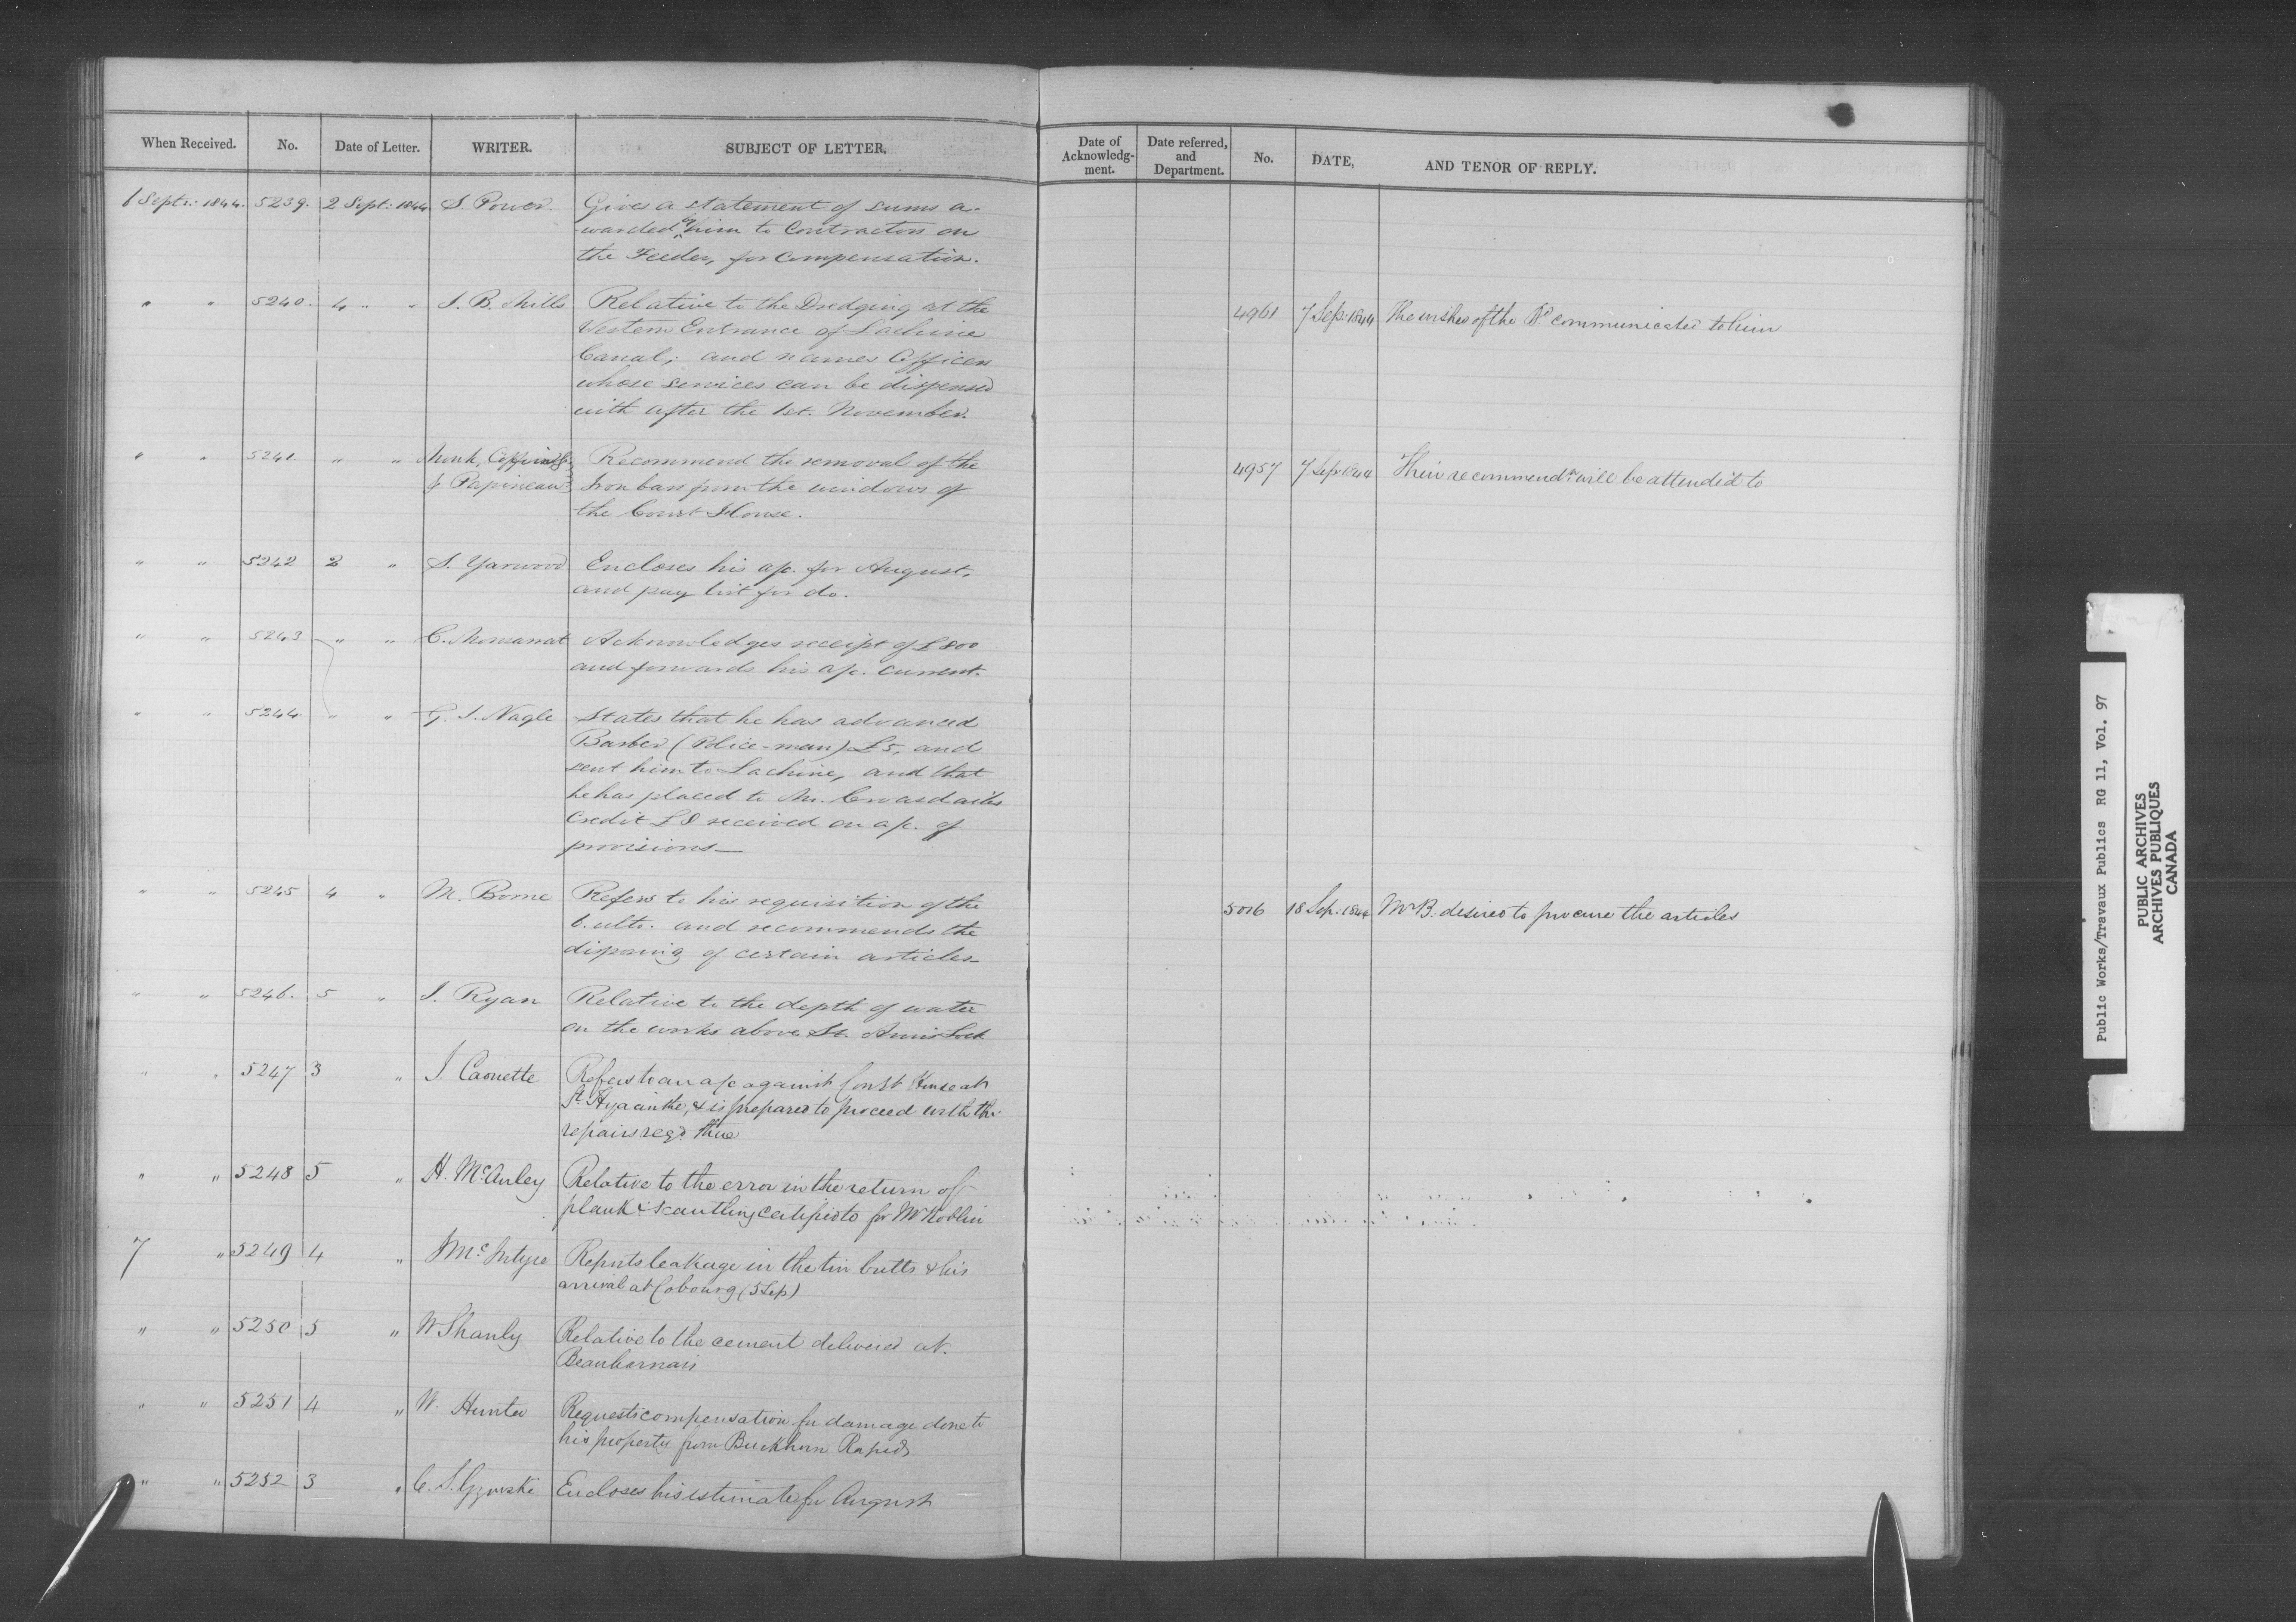 When Received. No. Date of Letter. WRITER. SUBJECT OF LETTER. Date of Acknowledg-ment. Date referred, and Department. No. DATE, AND TENOR OF REPLY.
6 Septr: 1844. 5239. 2 Sept: 1844 S. Power Gives a statement of sums a-
warded by him to Contractors on
the Feeder, for compensation.
" " 5240. 4 " " J. B. Mills Relative to the Dredging at the
Western Entrance of Lachine
Canal; and names Officers
whose services can be dispensed
with after the 1st. November.
4961 7 Sep: 1844 The wishes of the Bd communicated to him
" " 5241. " " Monk, Coffin
& Papineau Recommend the removal of the
Iron bars from the windows of
the Court House.
4957 7 Sep 1844 Their recommendn will be attended to
" " 5242 2 " S. Yarwood Encloses his a/c. for August,
and pay list for do.
" " 5243 " " C. Monsarrat Acknowledges receipt of £800
and forwards his a/c. current.
" " 5244 " " G. J. Nagle States that he has advanced
Barber (Police-man) £5, and
sent him to Lachine, and that
he has placed to Mr. Croasdailes
Credit £8 received on a/c. of
provisions—
" " 5245 4 " M. Borne Refers to his requisition of the
6. ulto. and recommends the
disposing of certain articles—
5016 18 Sep: 1844 Mr B. desired to procure the articles
" " 5246. 5 " J. Ryan Relative to the depth of water
on the works above St. Anns Lock
" " 5247 3 " J. Caouette Refers to an a/c against Court House at
St. Hyacinthe, & is prepared to proceed with the
repairs reqd. there
" " 5248 5 " H. McAuley Relative to the error in the return of
plank & scantling certified to for Mr Roblin
7 " 5249 4 " McIntyre Reports leakage in the tin butts & his
arrival at Cobourg (5 Sep)
" " 5250 5 " W Shanly Relative to the cement delivered at
Beauharnais
" " 5251 4 " W. Hunter Requests compensation for damage done to
his property from Buckhorn Rapids
" " 5252 3 " C. S. Gzowski Encloses his estimate for August
Public Works/Travaux Publics RG 11, Vol. 97
PUBLIC ARCHIVES
ARCHIVES PUBLIQUES
CANADA